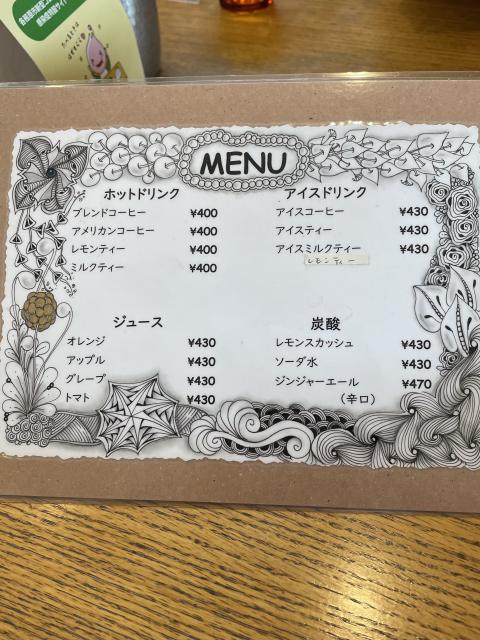 MENU
ホットドリンク
ブレンドコーヒー ¥400
アメリカンコーヒー ¥400
レモンティー ¥400
ミルクティー ¥400
アイスドリンク
アイスコーヒー ¥430
アイスティー ¥430
アイスミルクティー ¥430
レモンティー
ジュース
オレンジ ¥430
アップル ¥430
グレープ ¥430
トマト ¥430
炭酸
レモンスカッシュ ¥430
ソーダ水 ¥430
ジンジャーエール ¥470
（辛口）